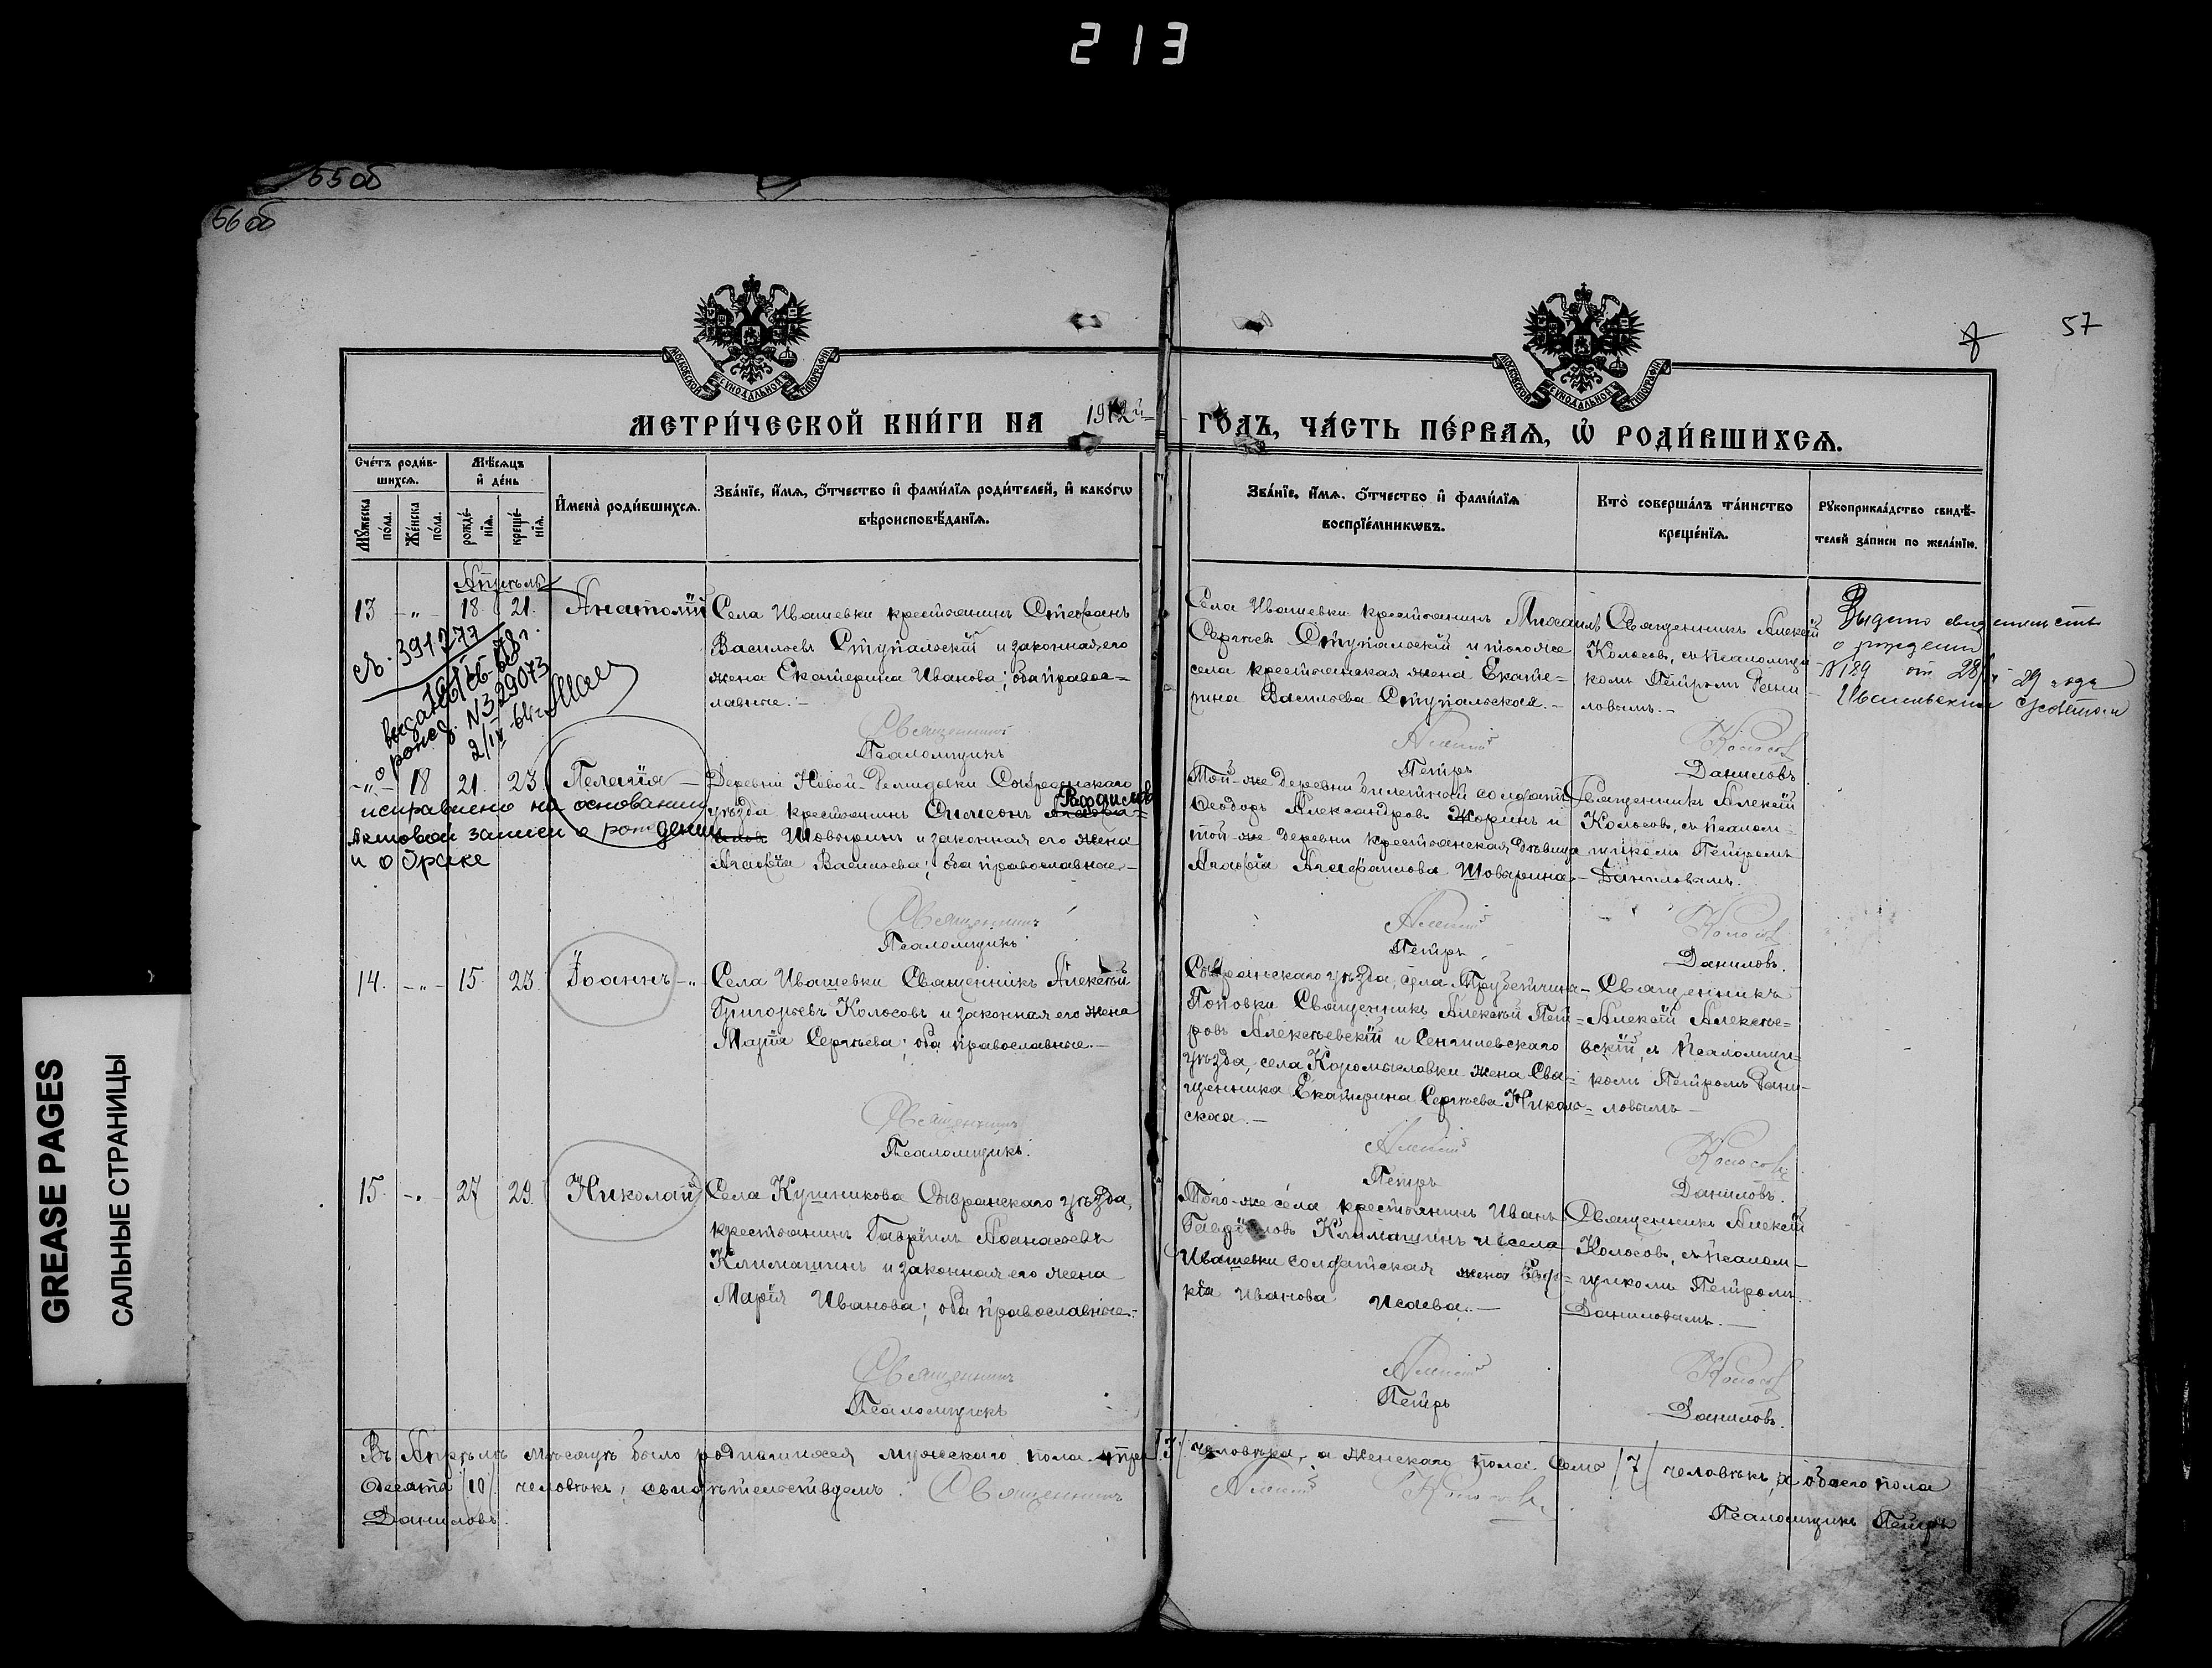 213
55 об
56 об
57
МОСКОВСКОЙ СѴНОДАЛЬНОЙ ТИПОГРАФІИ
МОСКОВСКОЙ СѴНОДАЛЬНОЙ ТИПОГРАФІИ
МЕТРИ́ЧЕСКОЙ КНИ́ГИ НА 1912й ГО́ДЪ, ЧА́СТЬ ПЕ́РВАѦ, Ѡ҆ РОДИ́ВШИХСѦ.
Счётъ роди́в-
шихсѧ.
Мꙋ́жеска по́ла.
Же́нска по́ла.
Мѣ́сѧцъ и҆ де́нь
рожде́нїѧ.
креще́нїѧ.
И҆мена̀ роди́вшихсѧ.
Зва́нїе, и҆́мѧ, ѻ҆́тчество и҆ фами́лїѧ роди́телей, и҆ како́гѡ
вѣроисповѣ́данїѧ.
Зва́нїе, и҆́мѧ, ѻ҆́тчество и҆ фами́лїѧ
воспрїе́мникѡвъ.
Кто̀ соверша́лъ та́инство
креще́нїѧ.
Рꙋкоприкла́дство свидѣ́-
телей за́писи по жела́нїю.
Апрѣль
13 -„- 18. 21. Анатолій
Села Ивашевки крестьянинъ Стефанъ
Васильевъ Ступальскій и законная его
жена Екатерина Иванова; оба правос=
лавные.-
Села Ивашевки крестьянинъ Михаилъ
Сергѣевъ Ступальскій и того же
села крестьянская жена Екате=
рина Васильева Ступальская.-
Священникъ Алексій
Колосовъ, съ псаломщи
комъ Петромъ Дани-
ловымъ.-
Выдано свидетельство
о рождении
№ 129 от 28/ 29 года
Ивашевским с/советом
св. 391273
о рожд. N 329073
2/IV-64г
Священникъ Алексій Колосовъ
Псаломщикъ Петръ Даниловъ
-„- 18 21. 23 Пелагія
исправлено на основании
актовой записи о рождении
и о браке
Деревни Новой-Репидовки Сызранскаго
уѣзда крестьянинъ Симеонъ Родионов
Шоваринъ и законная его жена
Агафія Васильева; оба православные.-
Той-же деревни билетный солдатъ
Ѳеодоръ Александровъ Жоринъ и
той-же деревни крестьянская дѣвица
Агафія Агафаилова Шоварина.-
Священникъ Алексій
Колосовъ, съ псалом-
щикомъ Петромъ
Даниловымъ.
Священникъ Алексій Колосовъ
Псаломщикъ Петръ Даниловъ.
14. -„- 15. 23. Іоаннъ -„-
Села Ивашевки Священникъ Алексѣй
Григорьевъ Колосовъ и законная его жена
Марія Сергѣева; оба православные.-
Сызранскаго уѣзда, села Трубетчина-
Поповки Священникъ Алексѣй Пет=
ровъ Алексѣевскій и Сенгилевскаго
уѣзда, села Коромысловки жена Свя=
щенника Екатерина Сергѣева Николь=
ская.-
Священникъ
Алексій Алексѣе=
вскій, съ псаломщи=
комъ Петромъ Дани-
ловымъ-
Священникъ Алексій Колосовъ
Псаломщикъ. Петръ Даниловъ.
15. -„- 27 29. Николай
Села Кушникова Сызранскаго уѣзда,
крестьянинъ Гавріилъ Аѳанасьевъ
Климашинъ и законная его жена
Марія Иванова; оба православные.-
Того-же села крестьянинъ Иванъ
Гавріиловъ Климашинъ и села
Ивашевки солдатская жена
Иванова Исаева.-
Священникъ Алексій
Колосовъ, съ псалом-
щикомъ Петромъ
Даниловымъ.-
Священникъ Алексій Колосовъ
Псаломщикъ Петръ Даниловъ.
Въ Апрѣлѣ мѣсяцѣ было родившихся мужскаго пола три /3/ человѣка, а женскаго пола семь /7/ человѣкъ, а обоего пола
десять /10/ человѣкъ; свидѣтельствуемъ. Священникъ Алексій Колосовъ. Псаломщикъ Петръ
Даниловъ.
GREASE PAGES
САЛЬНЫЕ СТРАНИЦЫ